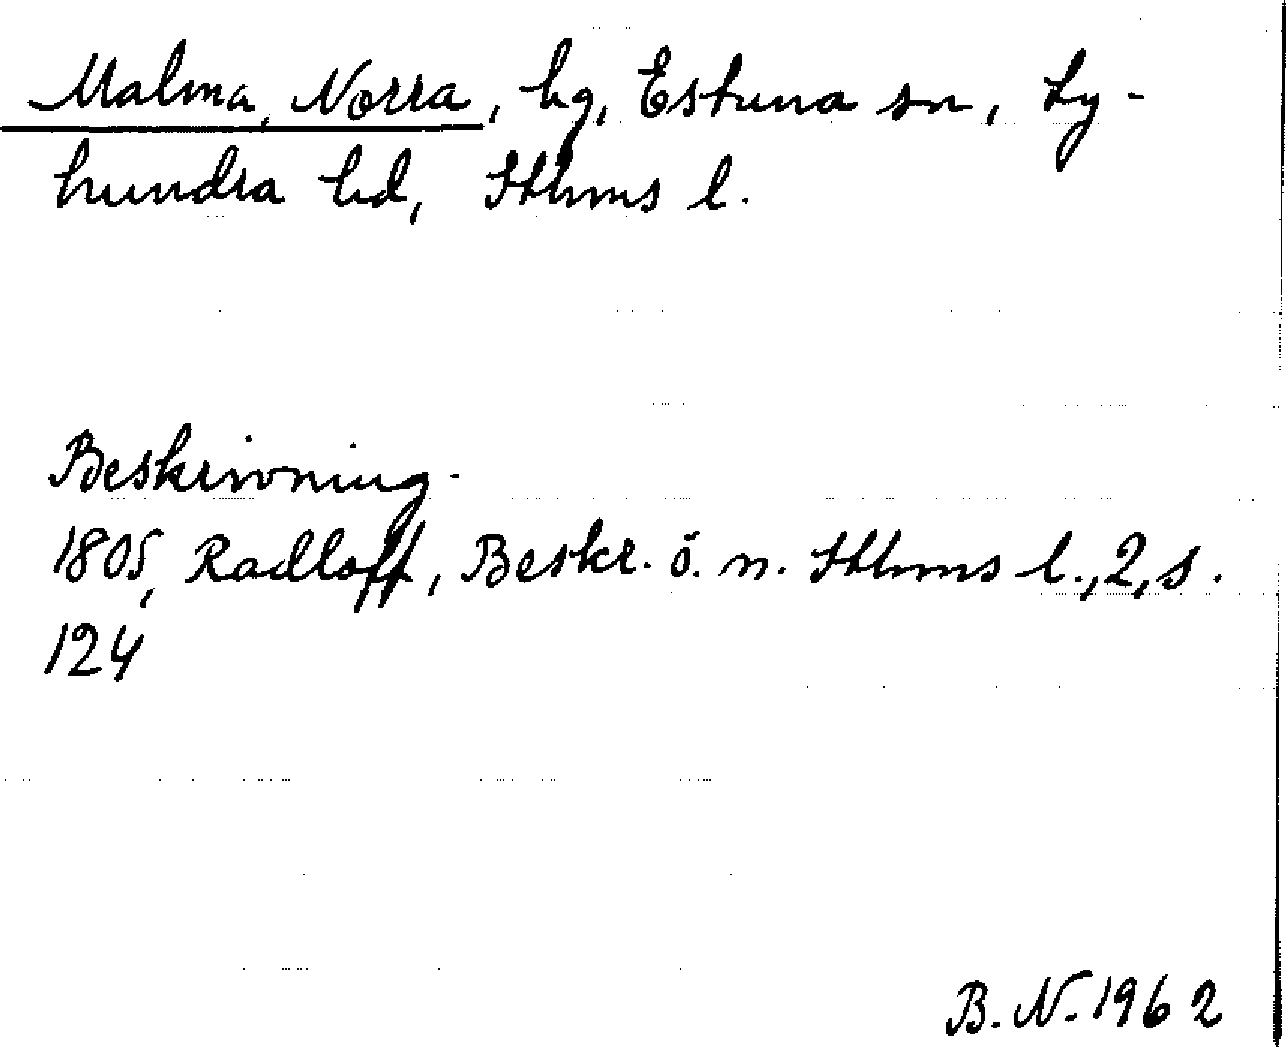 Malma, Norra, hg, Estuna sn, Ly-
hundra hd, Sthms l.
Beskrivning.
1805, Radloff, Beskr. ö. n. Sthms l., 2, s.
124
B. N. 1962